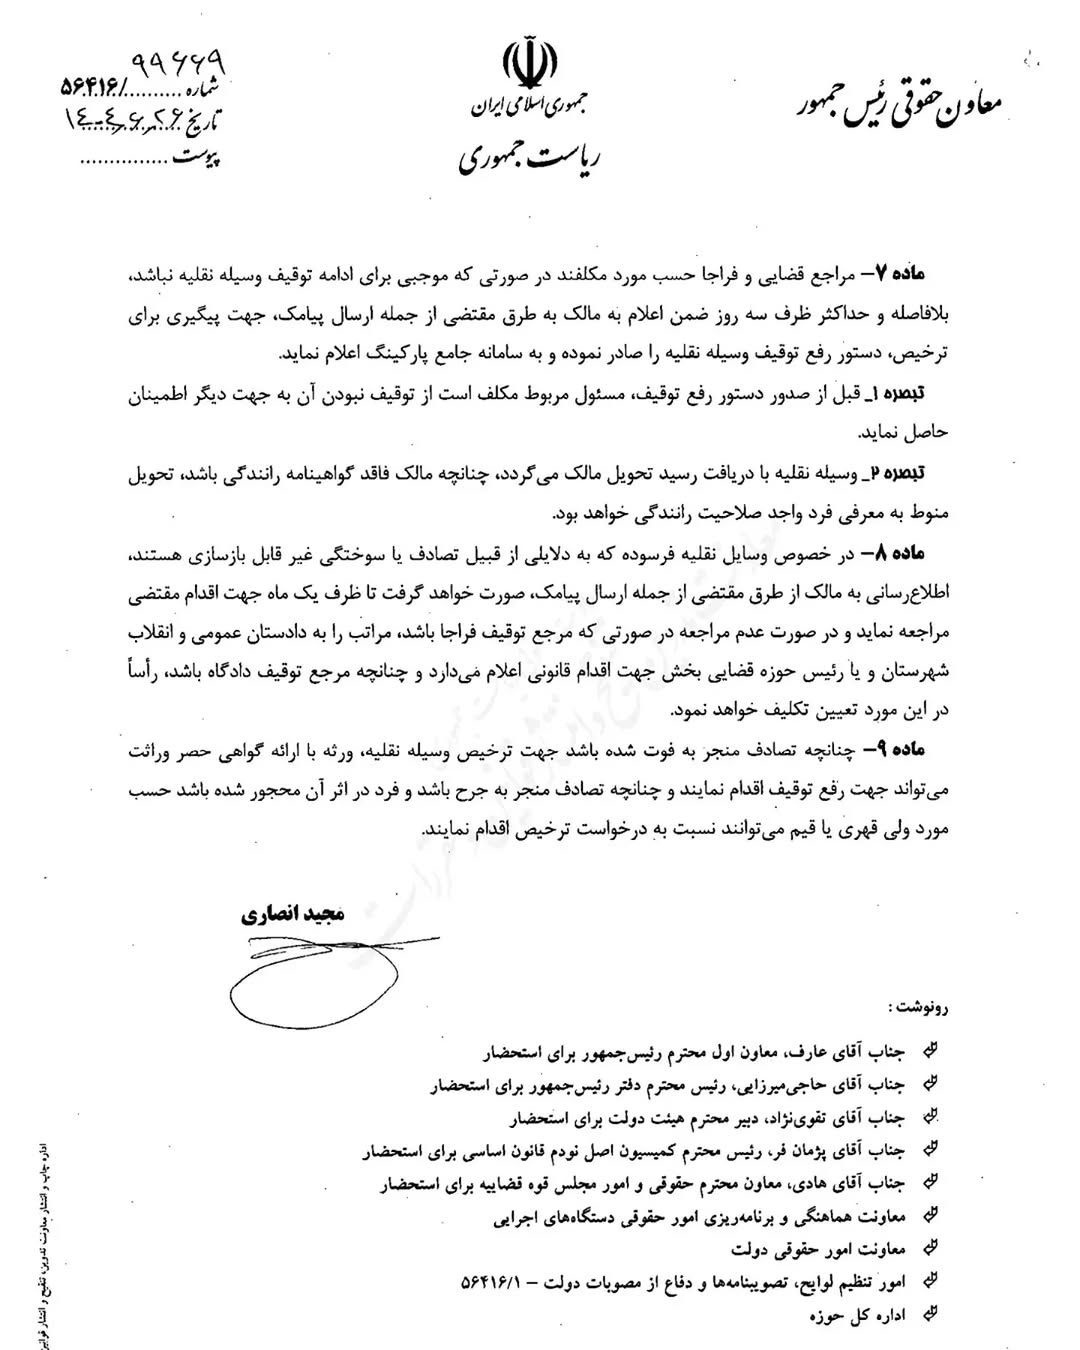 معاون حقوقی رئیس جمهور
جمهوری اسلامی ایران
ریاست جمهوری
۹۹۶۶۹
شماره ........../۵۶۴۱۶
تاریخ ۱۴۰۴/۰۶/۲۶
پیوست ...............
ماده ۷– مراجع قضایی و فراجا حسب مورد مکلفند در صورتی که موجبی برای ادامه توقیف وسیله نقلیه نباشد،
بلافاصله و حداکثر ظرف سه روز ضمن اعلام به مالک به طرق مقتضی از جمله ارسال پیامک، جهت پیگیری برای
ترخیص، دستور رفع توقیف وسیله نقلیه را صادر نموده و به سامانه جامع پارکینگ اعلام نماید.
تبصره ۱_ قبل از صدور دستور رفع توقیف، مسئول مربوط مکلف است از توقیف نبودن آن به جهت دیگر اطمینان
حاصل نماید.
تبصره ۲_ وسیله نقلیه با دریافت رسید تحویل مالک می‌گردد، چنانچه مالک فاقد گواهینامه رانندگی باشد، تحویل
منوط به معرفی فرد واجد صلاحیت رانندگی خواهد بود.
ماده ۸– در خصوص وسایل نقلیه فرسوده که به دلایلی از قبیل تصادف یا سوختگی غیر قابل بازسازی هستند،
اطلاع‌رسانی به مالک از طرق مقتضی از جمله ارسال پیامک، صورت خواهد گرفت تا ظرف یک ماه جهت اقدام مقتضی
مراجعه نماید و در صورت عدم مراجعه در صورتی که مرجع توقیف فراجا باشد، مراتب را به دادستان عمومی و انقلاب
شهرستان و یا رئیس حوزه قضایی بخش جهت اقدام قانونی اعلام می‌دارد و چنانچه مرجع توقیف دادگاه باشد، رأساً
در این مورد تعیین تکلیف خواهد نمود.
ماده ۹– چنانچه تصادف منجر به فوت شده باشد جهت ترخیص وسیله نقلیه، ورثه با ارائه گواهی حصر وراثت
می‌تواند جهت رفع توقیف اقدام نمایند و چنانچه تصادف منجر به جرح باشد و فرد در اثر آن محجور شده باشد حسب
مورد ولی قهری یا قیم می‌توانند نسبت به درخواست ترخیص اقدام نمایند.
مجید انصاری
رونوشت :
جناب آقای عارف، معاون اول محترم رئیس‌جمهور برای استحضار
جناب آقای حاجی‌میرزایی، رئیس محترم دفتر رئیس‌جمهور برای استحضار
جناب آقای تقوی‌نژاد، دبیر محترم هیئت دولت برای استحضار
جناب آقای پژمان فر، رئیس محترم کمیسیون اصل نودم قانون اساسی برای استحضار
جناب آقای هادی، معاون محترم حقوقی و امور مجلس قوه قضاییه برای استحضار
معاونت هماهنگی و برنامه‌ریزی امور حقوقی دستگاه‌های اجرایی
معاونت امور حقوقی دولت
امور تنظیم لوایح، تصویبنامه‌ها و دفاع از مصوبات دولت – ۵۶۴۱۶/۱
اداره کل حوزه
اداره چاپ و انتشار معاونت تدوین، تنقیح و انتشار قوانین